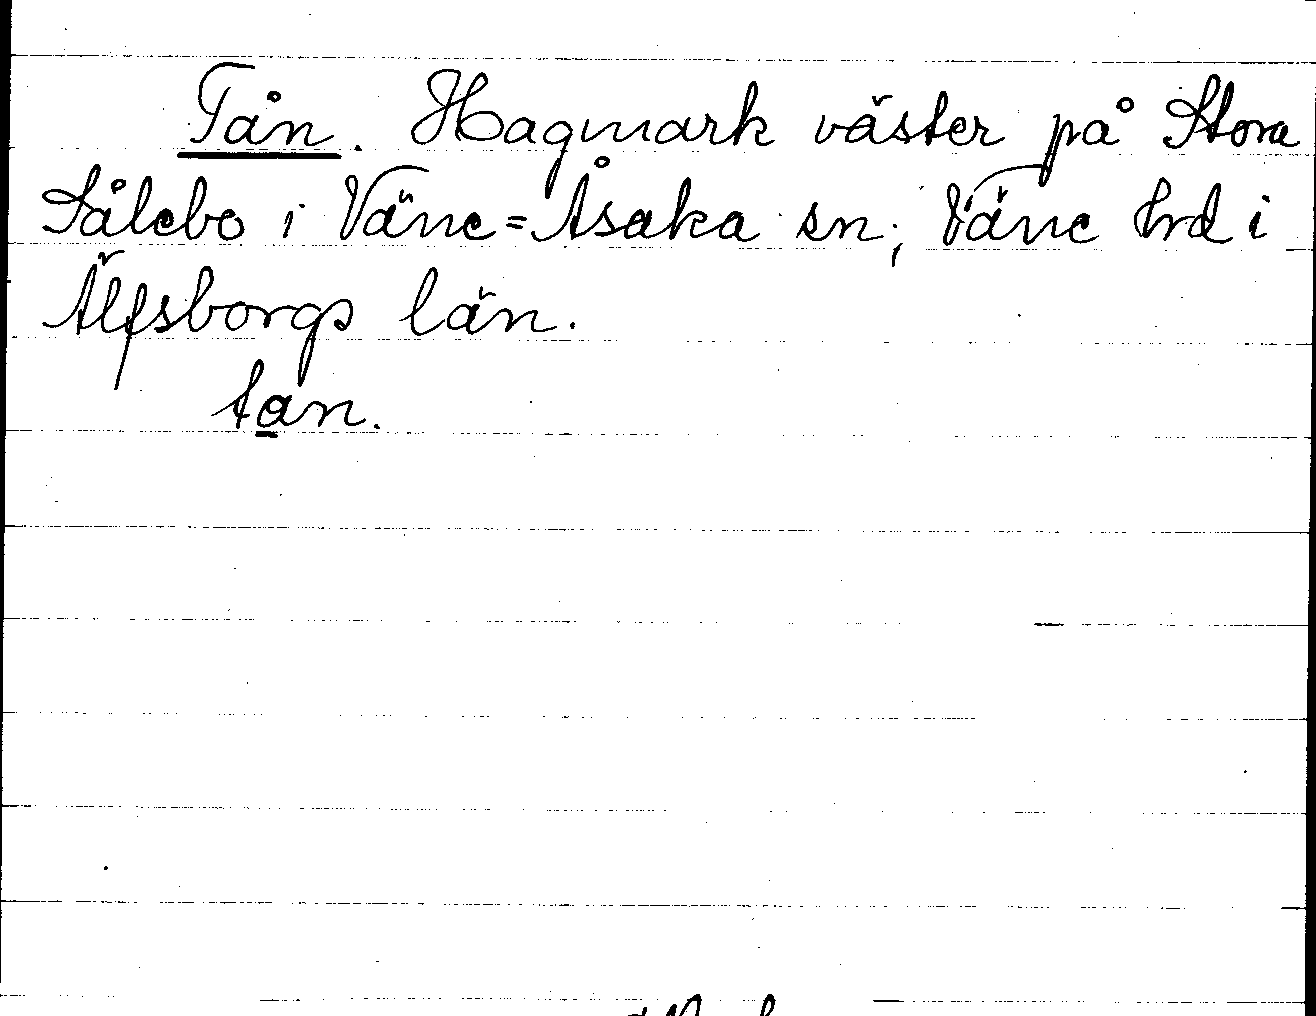 Tån. Hagmark väster på Stora
Sålebo i Väne=Åsaka sn; Väne hrd i
Älfsborgs län.
tan.